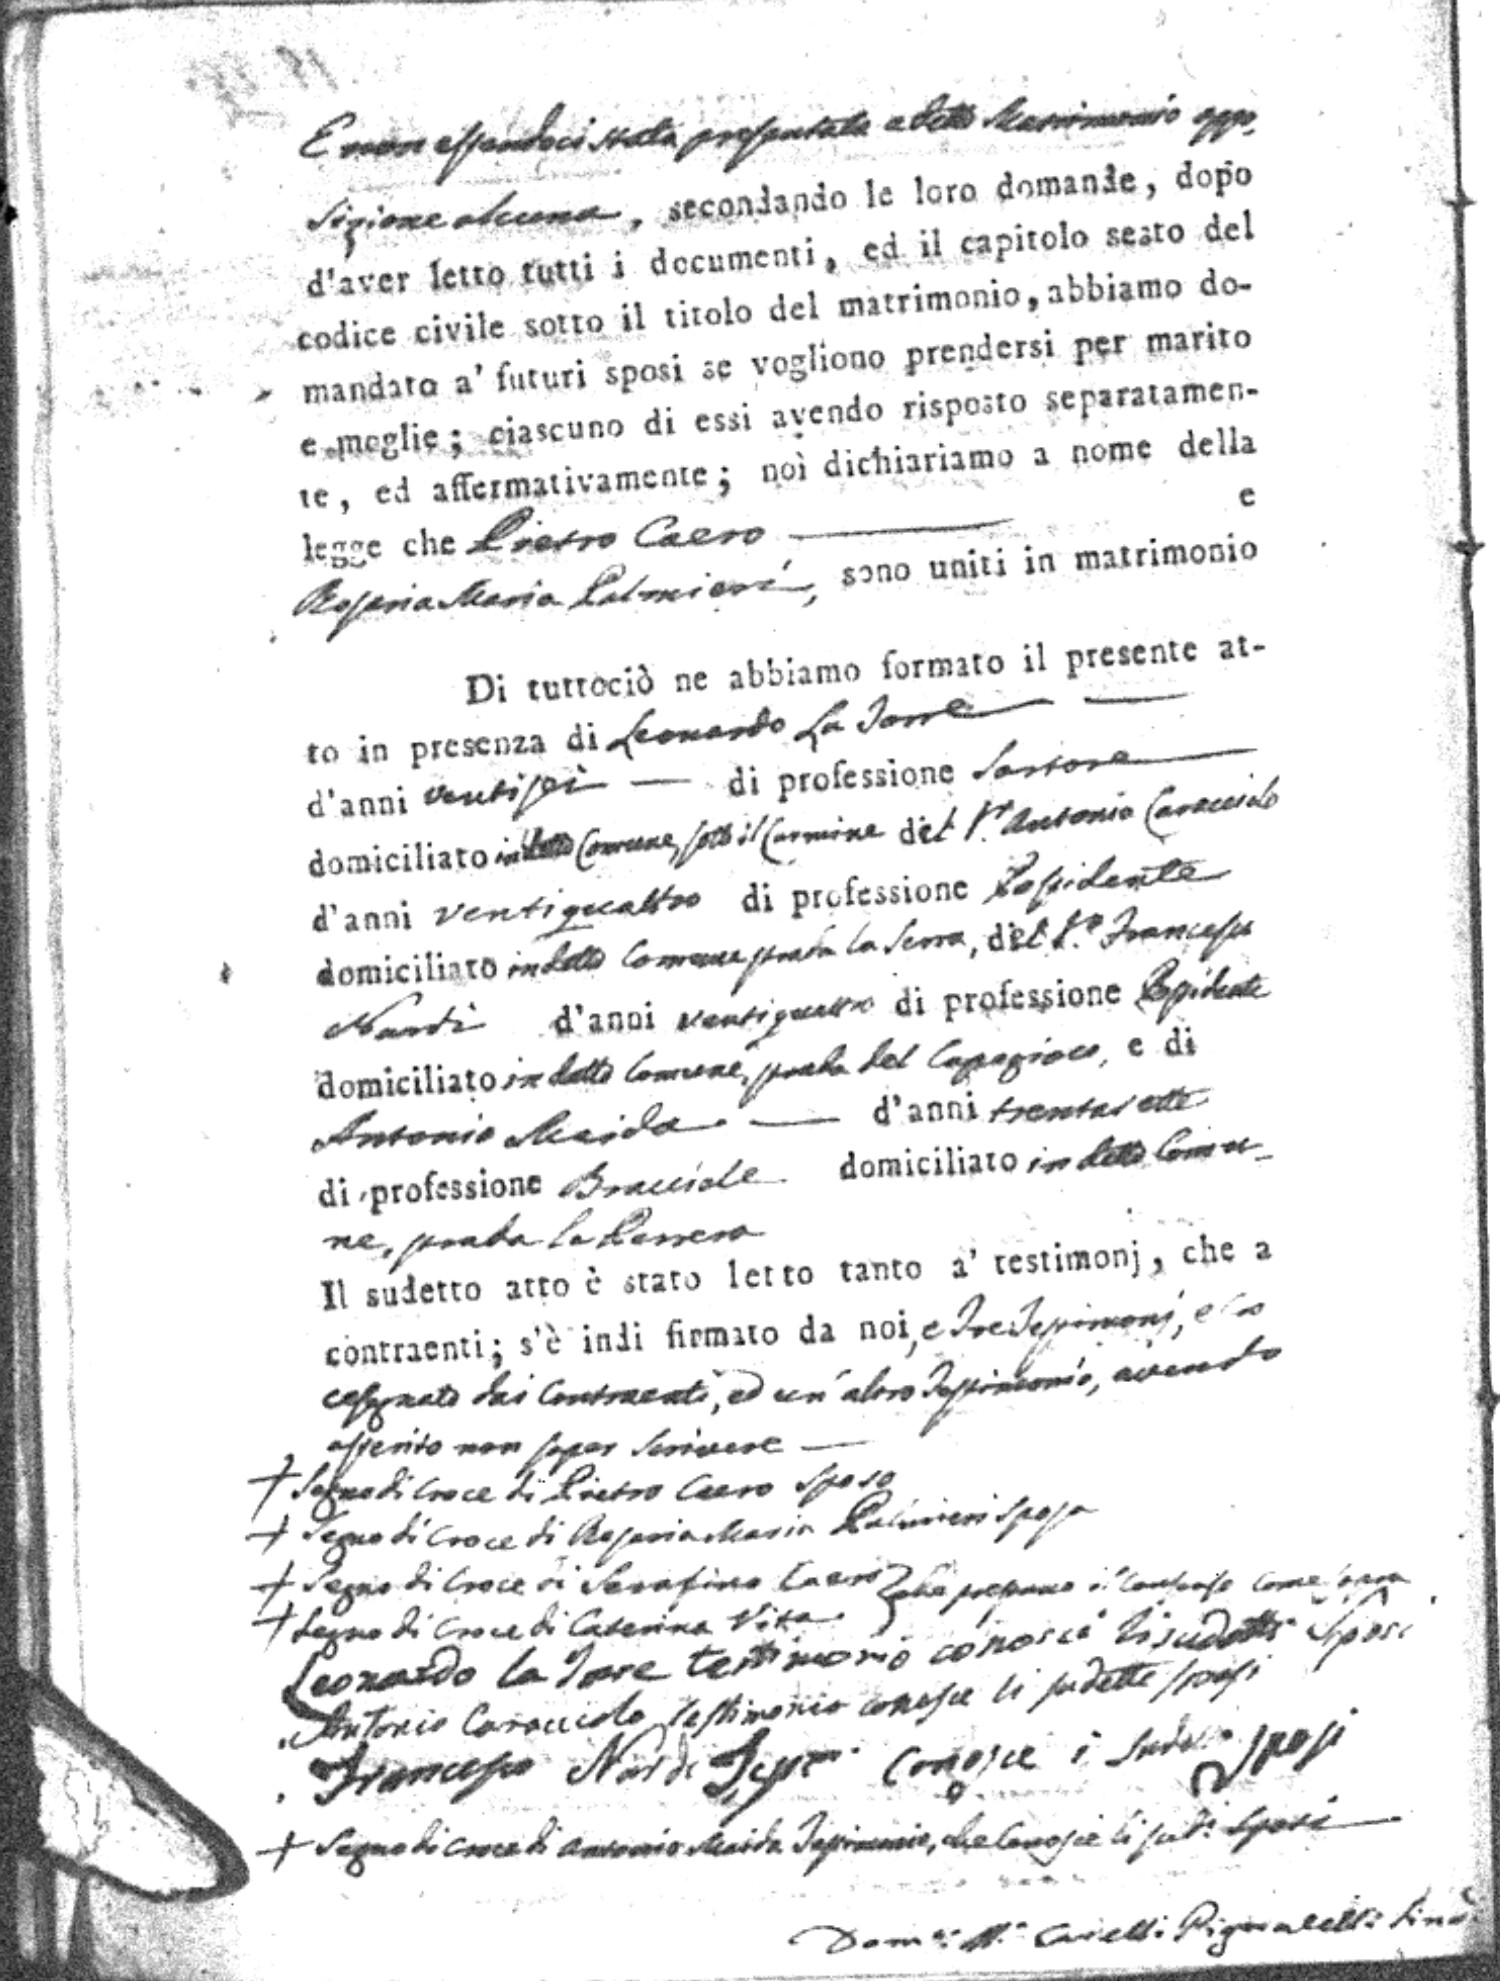 E non essendoci stata presentata a detto Matrimonio oppo,
sizione alcuna, secondando le loro domande, dopo
d'aver letto tutti i documenti, ed il capitolo sesto del
codice civile sotto il titolo del matrimonio, abbiamo do-
mandato a' futuri sposi se vogliono prendersi per marito
e moglie; ciascuno di essi avendo risposto separatamen-
te, ed affermativamente; noi dichiariamo a nome della
legge che Pietro Caero e
Rosaria Maria Palmieri, sono uniti in matrimonio
Di tuttociò ne abbiamo formato il presente at-
to in presenza di Leonardo La Torre
d'anni ventisei di professione Sartore
domiciliato in detto Comune, sotto il Carmine del Sr. Antonio Caracciolo
d'anni ventiquattro di professione Possidente
domiciliato in detto Comune strada la Serra, del Sr. Francesco
Nardi d'anni ventiquattro di professione Possidente
domiciliato in detto Comune, strada del, e di
Antonio Maida d'anni trentasette
di professione Bracciale domiciliato in detto Comu-
ne, strada la
Il sudetto atto è stato letto tanto a' testimonj, che a
contraenti; s'è indi firmato da noi, e Tre Testimonj, e Cro
cesegnato dai Contraenti, ed un' altro Testimonio, avendo
asserito non saper scrivere
+ Segno di Croce di Pietro Caero sposo
+ Segno di Croce di Rosaria Maria Palmieri sposa
+ Segno di Croce di Serafino Caero } che prestano il consenso come sopra
+ Segno di Croce di Caterina Vita
Leonardo la Torre testimonio conosce li sudetti Sposi
Antonio Caracciolo testimonio conosce li sudetti sposi
Francesco Nardi Testi.o conosce i sudetti sposi
+ Segno di Croce di Antonio Maida Testimonio, che Conosce li sud.i Sposi
Dom.o M.a Pignatelli Sind.